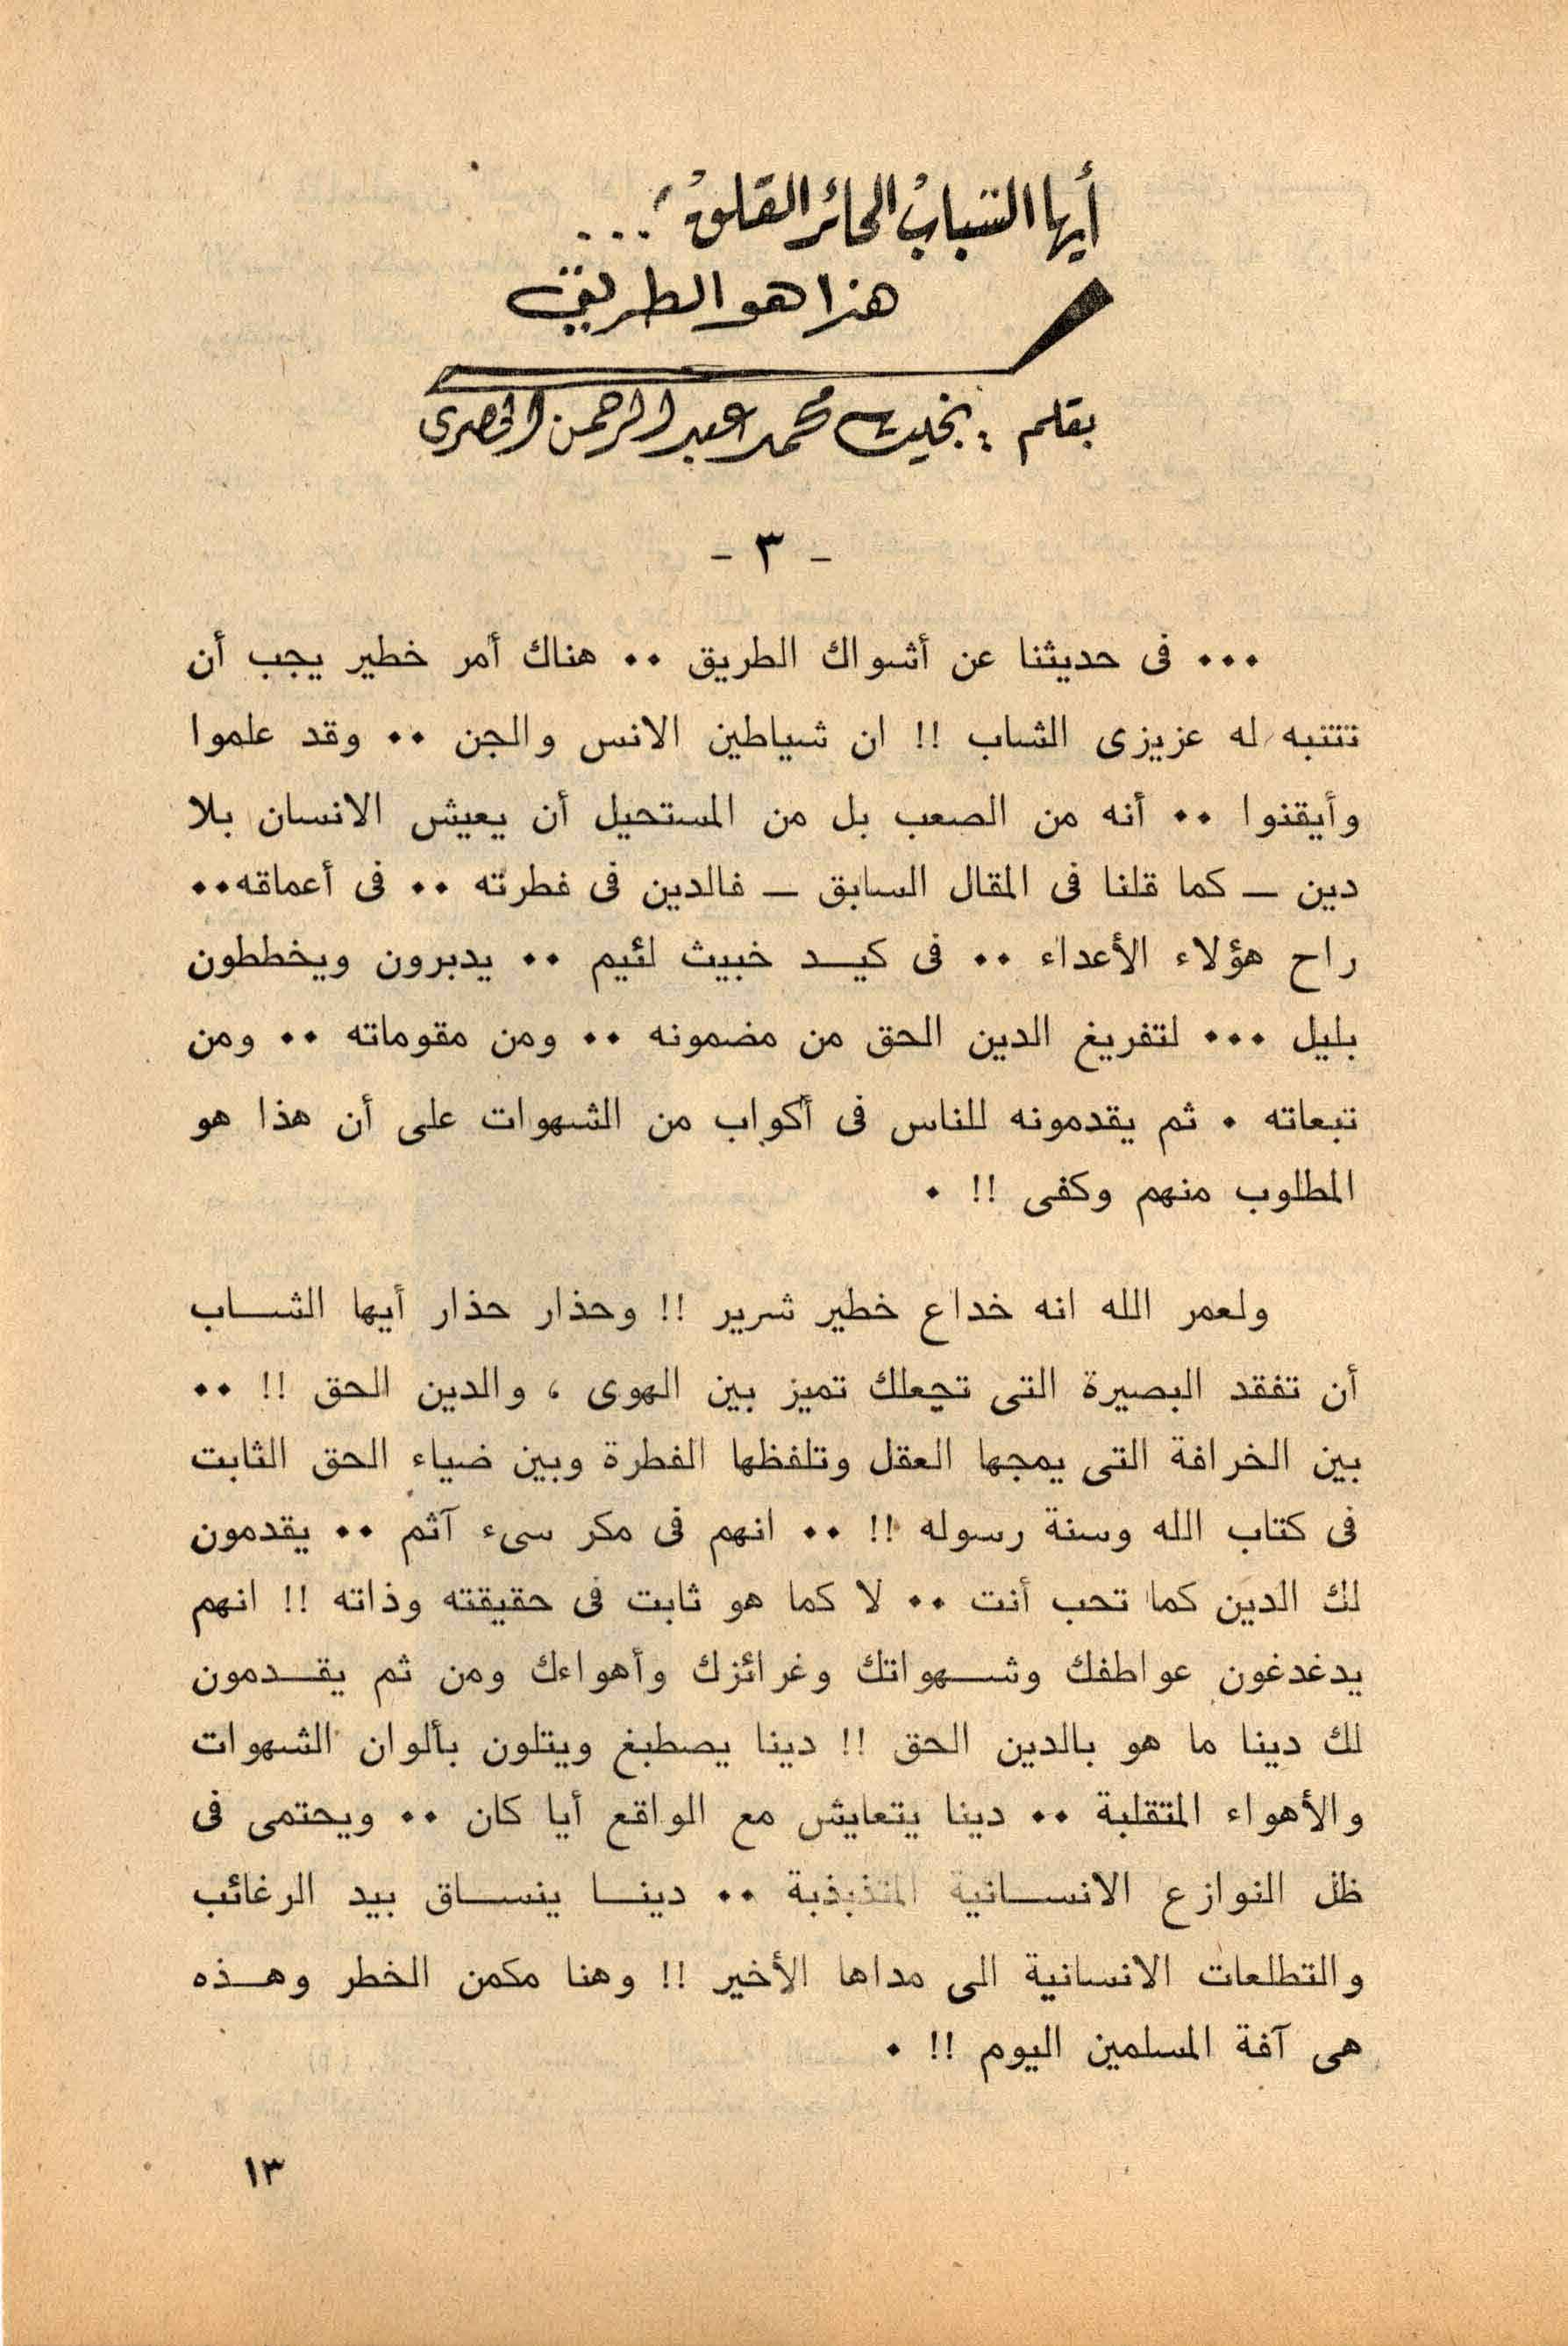 أيها الشبابُ الحائر القلقُ ! . . .
هذا هو الطريق
بقلم : بخيت محمد عبد الرحمن الحصرى
- ٣ -
٠٠٠ فى حديثنا عن أشواك الطريق ٠٠ هناك أمر خطير يجب أن
تتتبه له عزيزى الشاب !! ان شياطين الانس والجن ٠٠ وقد علموا
وأيقنوا ٠٠ أنه من الصعب بل من المستحيل أن يعيش الانسان بلا
دين ــ كما قلنا فى المقال السابق ــ فالدين فى فطرته ٠٠ فى أعماقه٠٠
راح هؤلاء الأعداء ٠٠ فى كيــد خبيث لئيم ٠٠ يدبرون ويخططون
بليل ٠٠٠ لتفريغ الدين الحق من مضمونه ٠٠ ومن مقوماته ٠٠ ومن
تبعاته ٠ ثم يقدمونه للناس فى أكواب من الشهوات على أن هذا هو
المطلوب منهم وكفى !! ٠
ولعمر الله انه خداع خطير شرير !! وحذار حذار أيها الشــاب
أن تفقد البصيرة التى تجعلك تميز بين الهوى ، والدين الحق !! ٠٠
بين الخرافة التى يمجها العقل وتلفظها الفطرة وبين ضياء الحق الثابت
فى كتاب الله وسنة رسوله !! ٠٠ انهم فى مكر سىء آثم ٠٠ يقدمون
لك الدين كما تحب أنت ٠٠ لا كما هو ثابت فى حقيقته وذاته !! انهم
يدغدغون عواطفك وشــهواتك وغرائزك وأهواءك ومن ثم يقــدمون
لك دينا ما هو بالدين الحق !! دينا يصطبغ ويتلون بألوان الشهوات
والأهواء المتقلبة ٠٠ دينا يتعايش مع الواقع أيا كان ٠٠ ويحتمى فى
ظل النوازع الانســانية المتذبذبة ٠٠ دينــا ينســاق بيد الرغائب
والتطلعات الانسانية الى مداها الأخير !! وهنا مكمن الخطر وهــذه
هى آفة المسلمين اليوم !! ٠
١٣